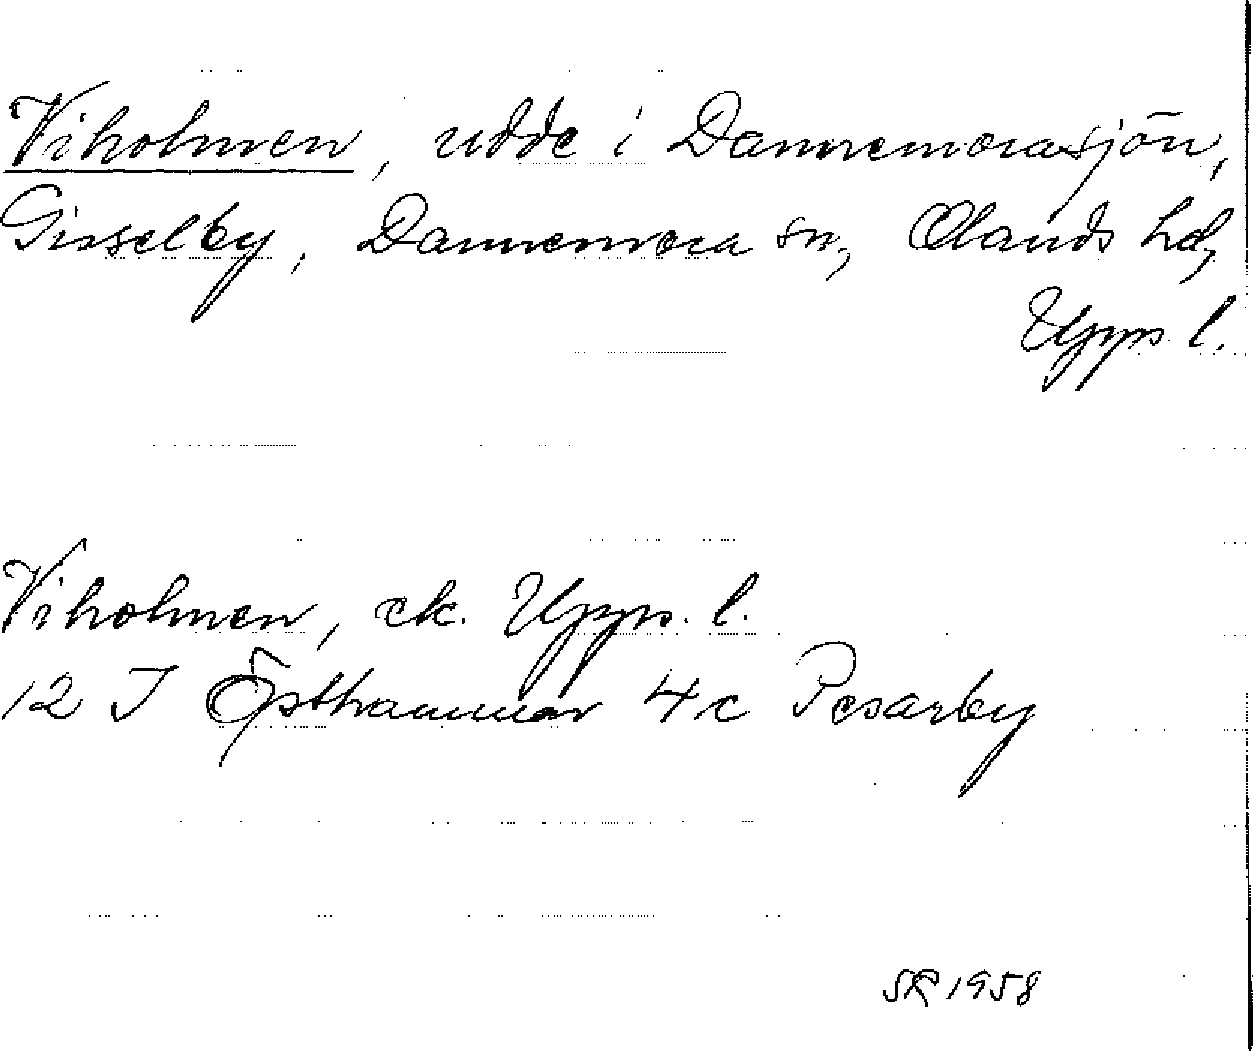 Viholmen, udde i Dannemorasjön,
Gisselby, Dannemora sn, Olands hd,
Upps. l.
Viholmen, ek. Upps. l.
12 I Östhammar 4c Pesarby
SR 1958